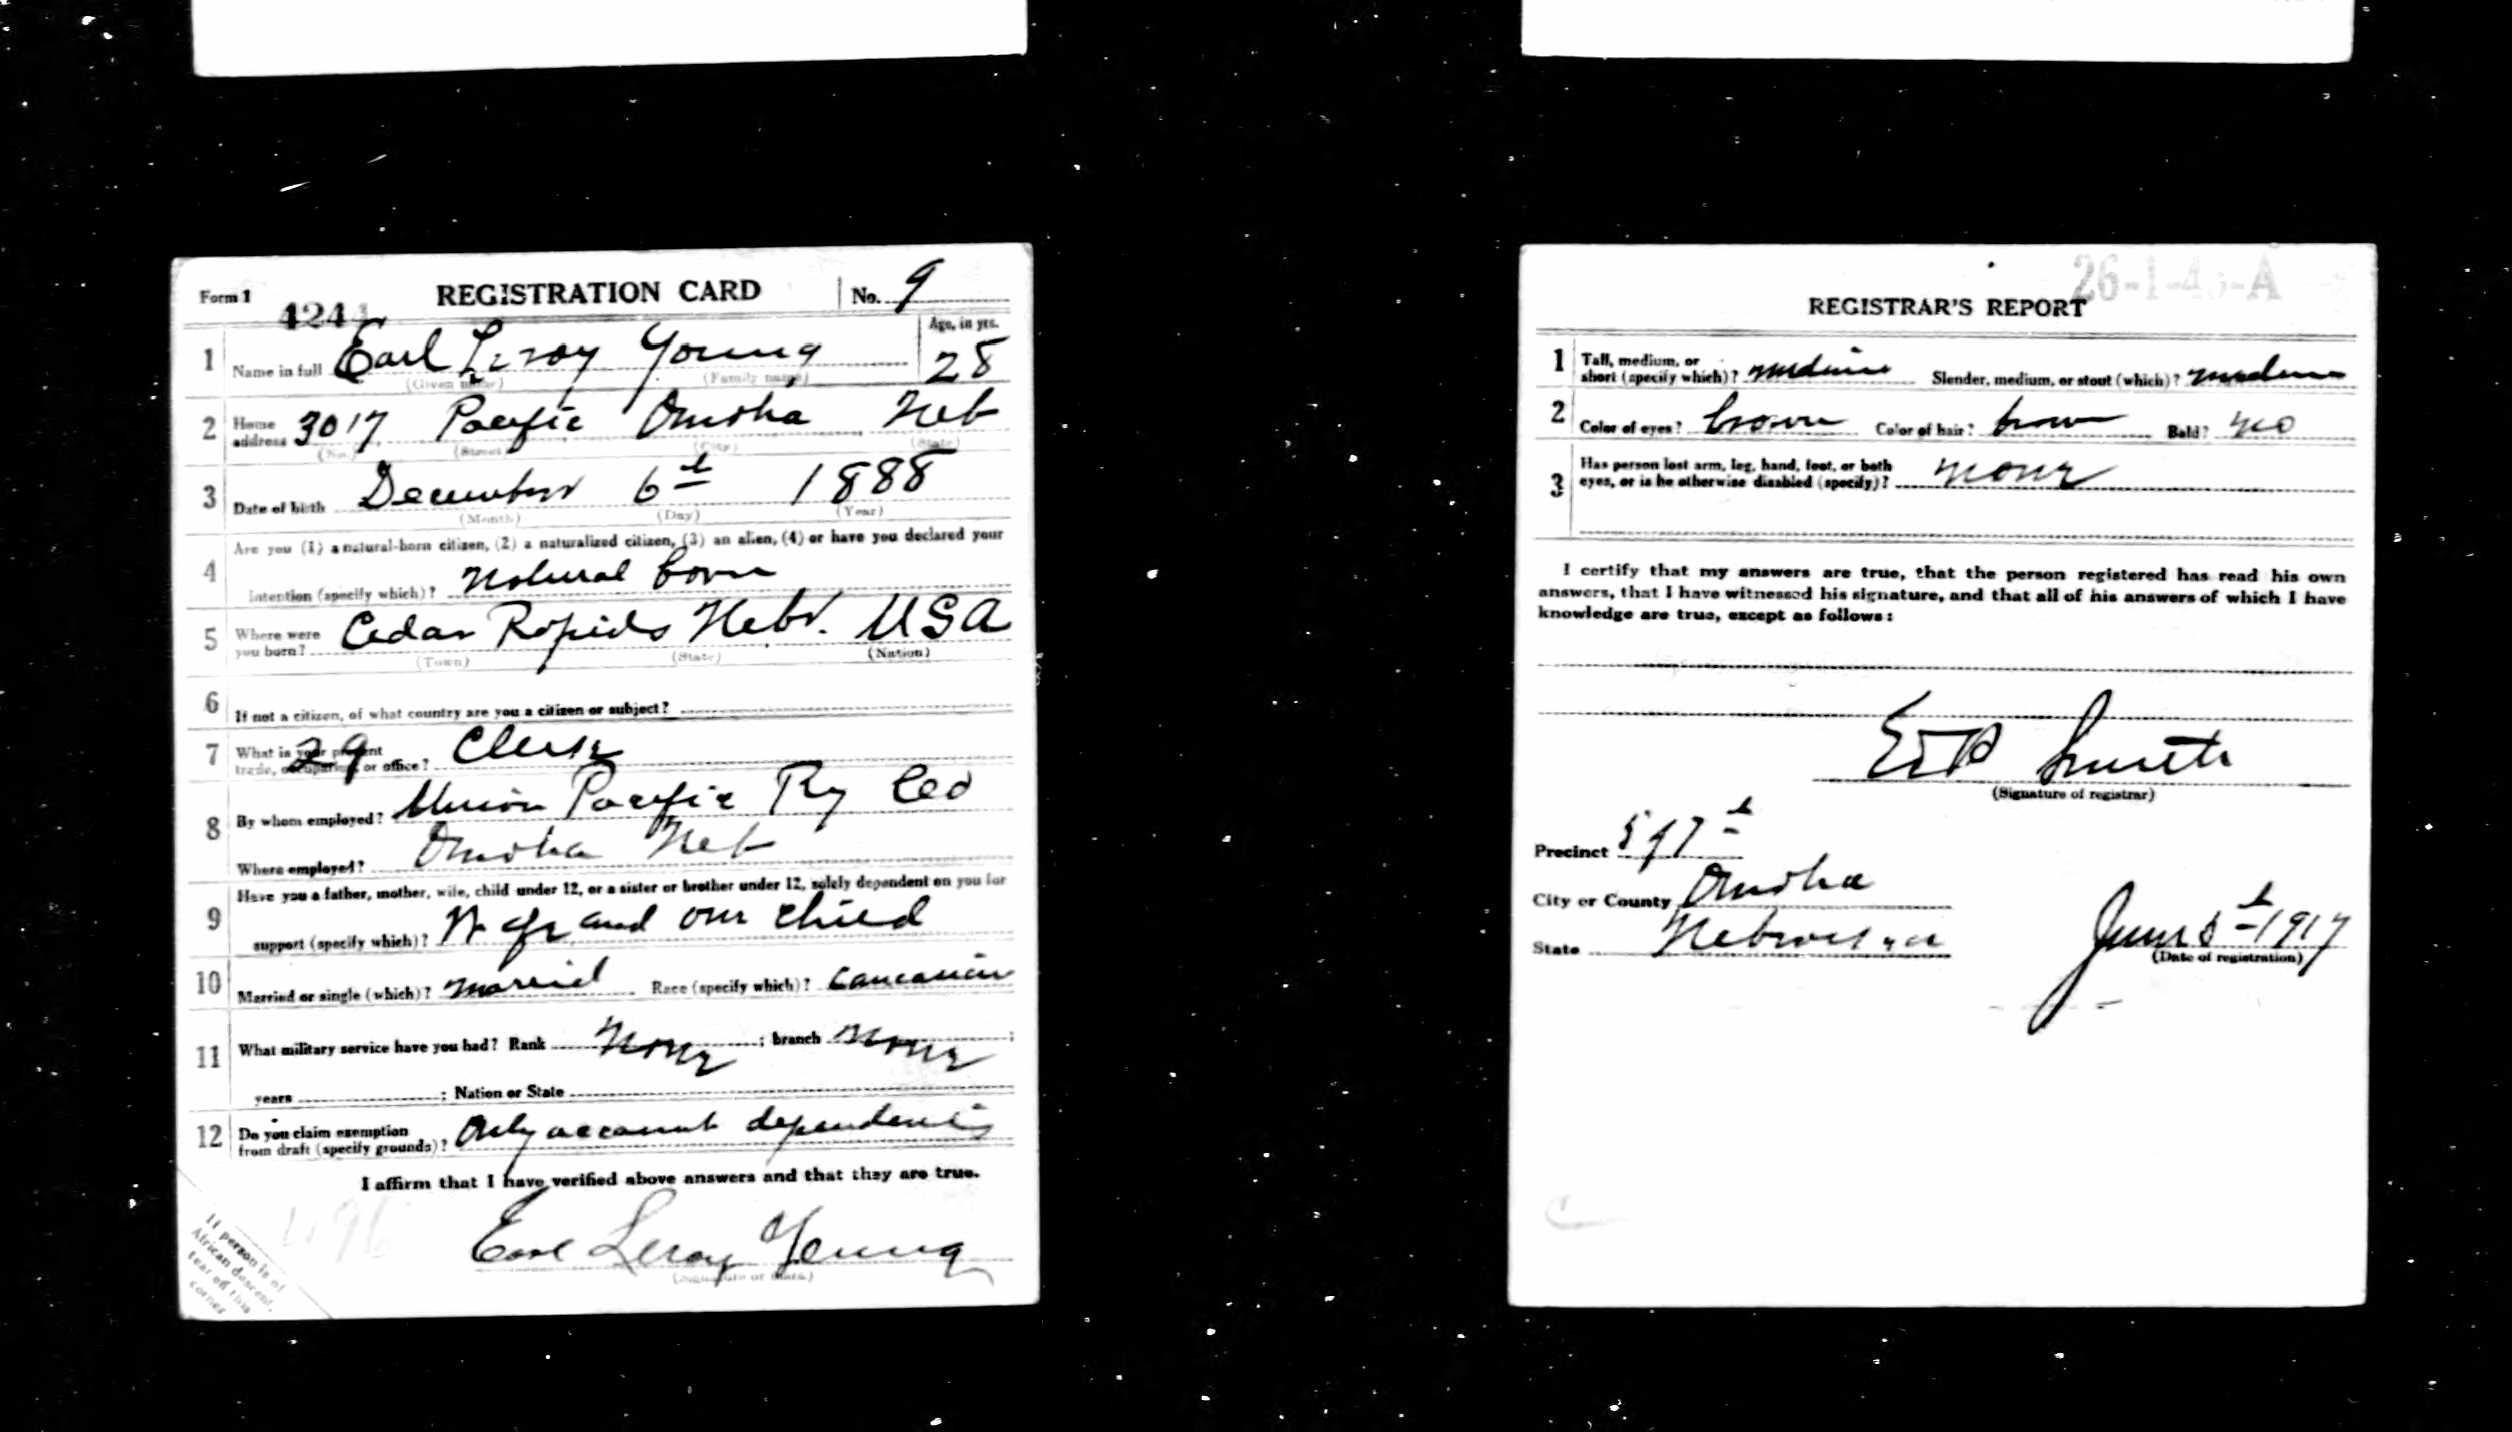 Form 1 REGISTRATION CARD No. 9
4244
Age, in yrs.
1 Name in full Earl Leroy Young 28
(Given name) (Family name)
2 Home address 3017 Pacific Omaha Neb
(No.) (Street) (City) (State)
3 Date of birth December 6th 1888
(Month) (Day) (Year)
Are you (1) a natural-born citizen, (2) a naturalized citizen, (3) an alien, (4) or have you declared your
4 intention (specify which)? Natural born
5 Where were you born? Cedar Rapids Nebr. USA
(Town) (State) (Nation)
6 If not a citizen, of what country are you a citizen or subject?
7 What is your present trade, occupation, or office? 29 Clerk
8 By whom employed? Union Pacific Ry Co
Where employed? Omaha Neb
Have you a father, mother, wife, child under 12, or a sister or brother under 12, solely dependent on you for
9 support (specify which)? Wife and our child
10 Married or single (which)? married Race (specify which)? Caucasian
11 What military service have you had? Rank None ; branch None ;
years ; Nation or State
12 Do you claim exemption
from draft (specify grounds)? Only account dependents
I affirm that I have verified above answers and that they are true.
Earl Leroy Young
(Signature or mark)
If person is of
African descent,
tear off this
corner
26-1-4-A
REGISTRAR'S REPORT
1 Tall, medium, or
short (specify which)? medium Slender, medium, or stout (which)? medium
2 Color of eyes? brown Color of hair? brown Bald? no
3 Has person lost arm, leg, hand, foot, or both
eyes, or is he otherwise disabled (specify)? None
I certify that my answers are true, that the person registered has read his own
answers, that I have witnessed his signature, and that all of his answers of which I have
knowledge are true, except as follows:
Smith
(Signature of registrar)
Precinct
City or County Omaha
State Nebraska June 5th 1917
(Date of registration)